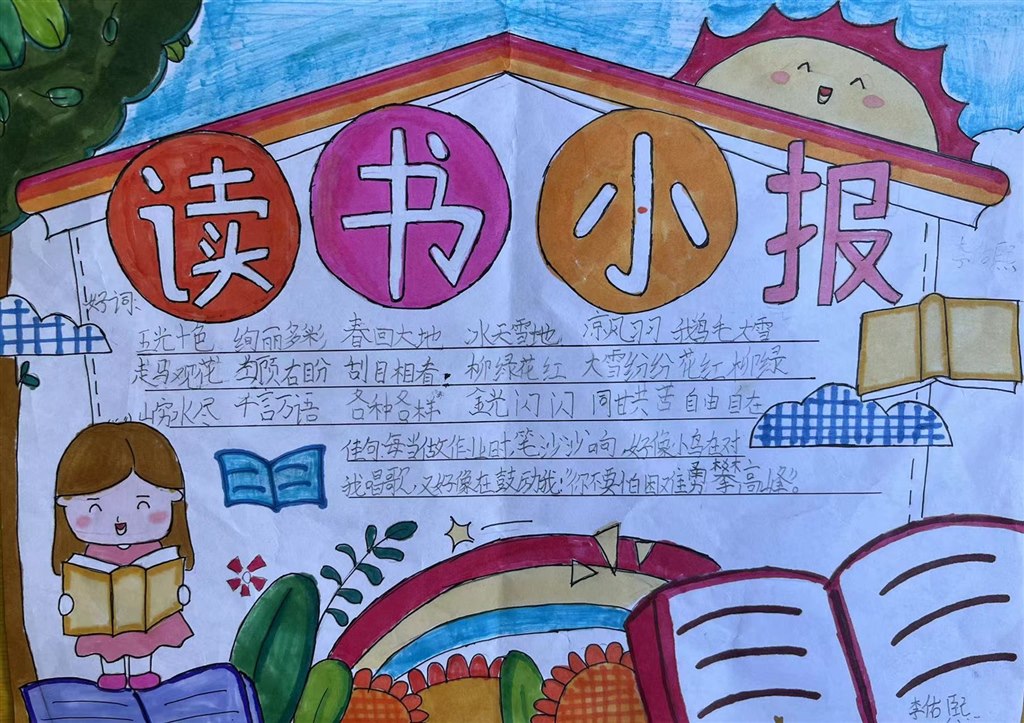 读书小报
好词:
五光十色 绚丽多彩 春回大地 冰天雪地 凉风习习 鹅毛大雪
走马观花 左顾右盼 刮目相看. 柳绿花红 大雪纷纷 花红柳绿
山穷水尽 千言万语 各种各样 金光闪闪 同甘共苦 自由自在
佳句每当做作业时,笔沙沙响,好像小鸟在对
我唱歌,又好像在鼓励我:"你不要怕困难勇攀高峰"。
李佑熙